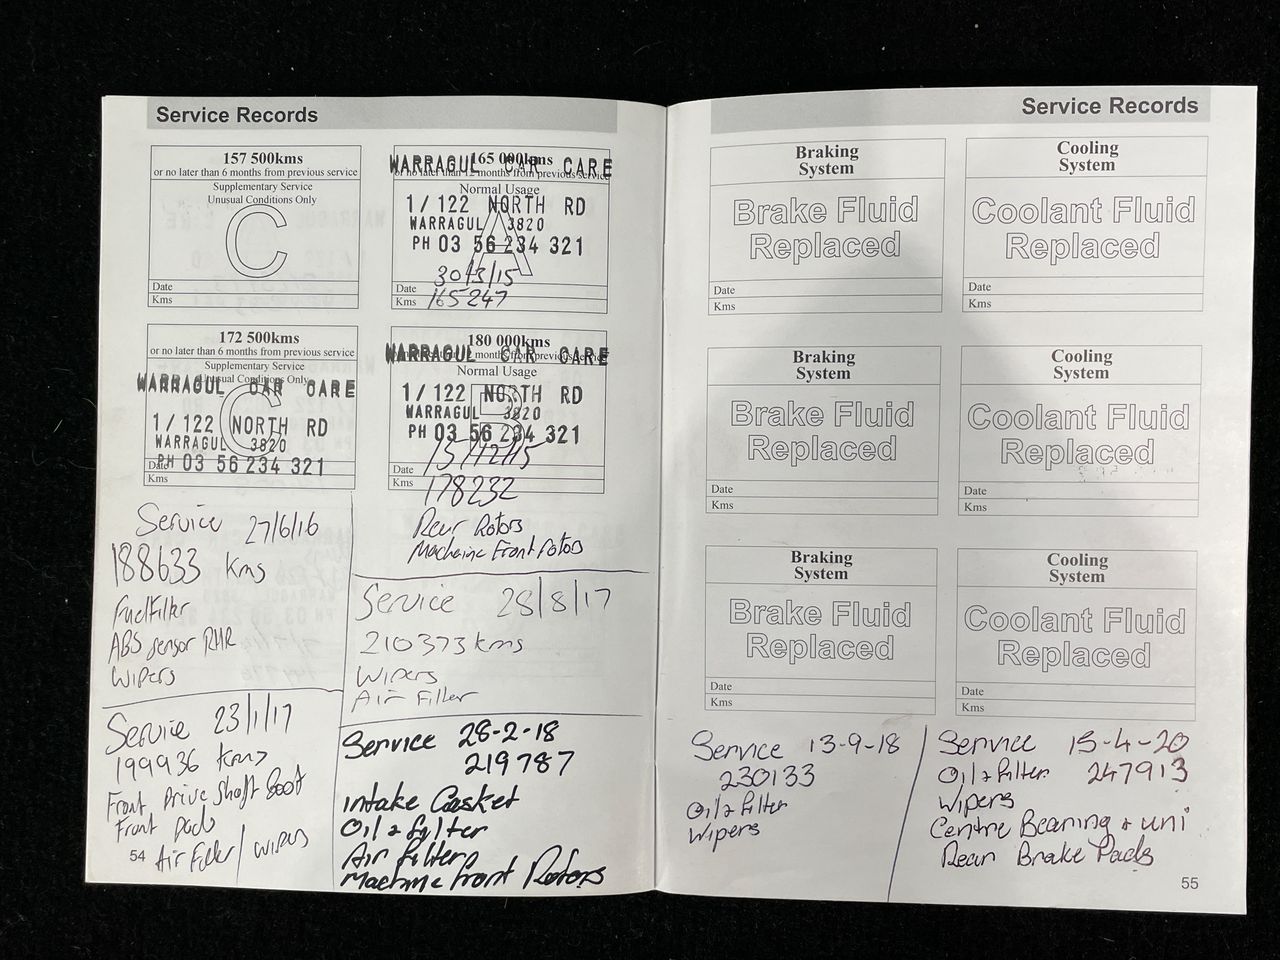 Service Records
157 500kms
or no later than 6 months from previous service
Supplementary Service
Unusual Conditions Only
C
Date
Kms
165 000kms
WARRAGUL CAR CARE
or no later than 12 months from previous service
Normal Usage
A
1/122 NORTH RD
WARRAGUL 3820
PH 03 56 234 321
Date 30/3/15
Kms 165247
172 500kms
or no later than 6 months from previous service
Supplementary Service
Unusual Conditions Only
WARRAGUL CAR CARE
C
1/122 NORTH RD
WARRAGUL 3820
Date
PH 03 56 234 321
Kms
180 000kms
WARRAGUL CAR CARE
months from previous service
Normal Usage
B
1/122 NORTH RD
WARRAGUL 3820
PH 03 56 234 321
Date 15/12/15
Kms 178232
Rear Rotors
Machine Front Rotors
Service 27/6/16
188633 kms
Fuel Filter
ABS sensor RHR
Wipers
Service 28/8/17
210373 kms
Wipers
Air Filter
Service 23/1/17
199936 kms
Front Drive Shaft Boot
Front Pads
Air Filter / Wipers
Service 28-2-18
219787
Intake Gasket
Oil & Filter
Air Filter
Machine Front Rotors
54
Service Records
Braking
System
Brake Fluid
Replaced
Date
Kms
Cooling
System
Coolant Fluid
Replaced
Date
Kms
Braking
System
Brake Fluid
Replaced
Date
Kms
Cooling
System
Coolant Fluid
Replaced
Date
Kms
Braking
System
Brake Fluid
Replaced
Date
Kms
Cooling
System
Coolant Fluid
Replaced
Date
Kms
Service 13-9-18
230133
Oil & Filter
Wipers
Service 15-4-20
Oil & Filter 247913
Wipers
Centre Bearing & uni
Rear Brake Pads
55